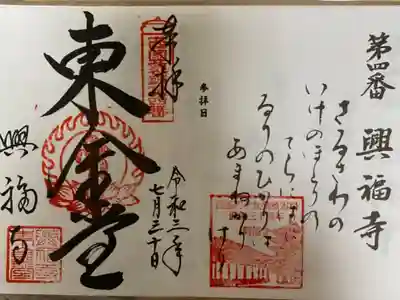 第四番 興福寺
さるさわの
いけのほとりの
てらにまい
るりのひかりは
あまねかり
けり
参拝日
奉拝
令和三年
七月三十日
東金堂
興福寺